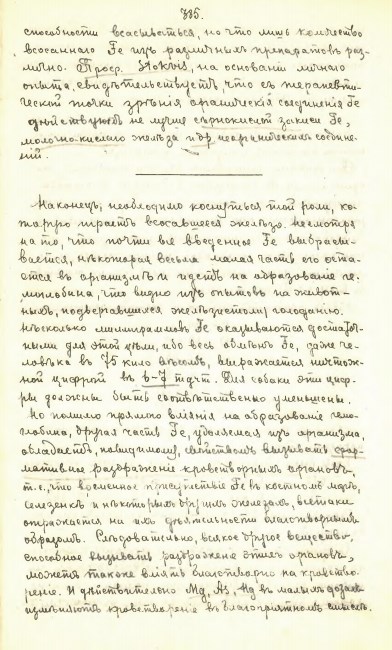 335.
способности всасываться, но что лишь количество
всосаннаго Fe изъ различныхъ препаратовъ раз-
лично. Проф. Stokvis, на основаніи личнаго
опыта, свидѣтельствуетъ, что съ терапевти-
ческой точки зрѣнія органическія соединенія Fe
дѣйствуютъ не лучше сѣрнокислой закиси Fe,
молочно-кислаго желѣза и др. неорганическихъ соедине-
ній.
Наконецъ, необходимо коснуться той роли, ко-
торую играетъ всосавшееся желѣзо. Несмотря
на то, что почти все введенное Fe выбрасы-
вается, нѣкоторая весьма малая часть его оста-
ется въ организмѣ и идетъ на образованіе ге-
моглобина, что видно изъ опытовъ на живот-
ныхъ, подвергавшихся желѣзистому голоданію.
Нѣсколько миллиграммовъ Fe оказываются достаточ-
ными для этой цѣли, ибо весь обмѣнъ Fe, даже че-
ловѣка въ 75 кило вѣсомъ, выражается ничтож-
ной цифрой въ 6-7 mgrm. Для собаки эти циф-
ры должны быть соотвѣтственно уменьшены.
Но помимо прямого вліянія на образованіе гемо-
глобина, другая часть Fe, удаляемая изъ организма,
обладаетъ, повидимому, свойствомъ вызывать фор-
мативное раздраженіе кровотворныхъ органовъ,
т. е., что временное присутствіе Fe въ костномъ мозгѣ,
селезенкѣ и нѣкоторыхъ другихъ железахъ, всетаки
отражается на ихъ дѣятельности благотворнымъ
образомъ. Слѣдовательно, всякое другое вещество,
способное вызывать раздраженіе этихъ органовъ,
можетъ также вліять благотворно на кровотво-
реніе. И дѣйствительно Mg, As, Hg въ малыхъ дозахъ
измѣняютъ кровотвореніе въ благопріятномъ смыслѣ.